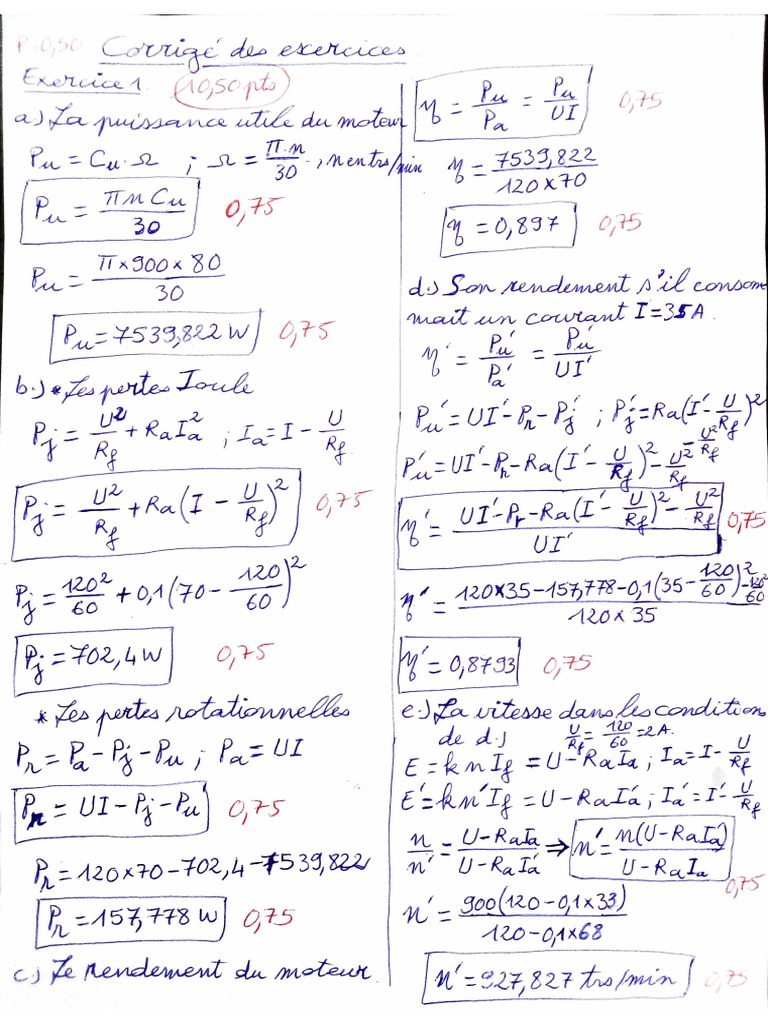 P. 0,50 Corrigé des exercices
Exercice 1. (10,50 pts)
a.) La puissance utile du moteur
Pu = Cu·Ω ; Ω = π·n/30 ., n en trs/min
Pu = πnCu/30 0,75
Pu = π×900×80/30
Pu = 7539,822 W 0,75
b.) * Les pertes Joule
Pj = U²/Rf + RaIa² ; Ia = I − U/Rf
Pj = U²/Rf + Ra(I − U/Rf)² 0,75
Pj = 120²/60 + 0,1(70 − 120/60)²
Pj = 702,4 W 0,75
* Les pertes rotationnelles
Pr = Pa − Pj − Pu ; Pa = UI
Pr = UI − Pj − Pu 0,75
Pr = 120×70 − 702,4 − 7539,822
Pr = 157,778 W 0,75
c.) Le rendement du moteur
η = Pu/Pa = Pu/UI 0,75
η = 7539,822/120×70
η = 0,897 0,75
d.) Son rendement s'il consom
mait un courant I = 35A.
η' = Pu'/Pa' = Pu'/UI'
Pu' = UI' − Pr − Pj' ; Pj' = Ra(I' − U/Rf)²
− U²/Rf
Pu' = UI' − Pr − Ra(I' − U/Rf)² − U²/Rf
η' = UI' − Pr − Ra(I' − U/Rf)² − U²/Rf / UI' 0,75
η' = 120×35 − 157,778 − 0,1(35 − 120/60)² − 120²/60 / 120×35
η' = 0,8793 0,75
e.) La vitesse dans les condition
de d.) U/Rf = 120/60 = 2A.
E = knIf = U − RaIa ; Ia = I − U/Rf
E' = kn'If = U − RaIa' ; Ia' = I' − U/Rf
n/n' = U − RaIa/U − RaIa' ⇒ n' = n(U − RaIa')/U − RaIa
0,75
n' = 900(120 − 0,1×33)/120 − 0,1×68
n' = 927,827 trs/min 0,75